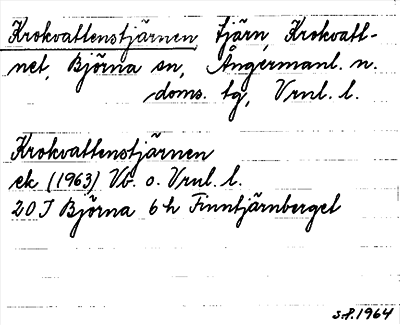 Krokvattenstjärnen, tjärn, Krokvatt-
net, Björna sn, Ångermanl. n.
doms. tg, Vrnl. l.
Krokvattenstjärnen
ek (1963) Vb. o. Vrnl. l.
20 J Björna 6 h Finntjärnberget
S.P. 1964